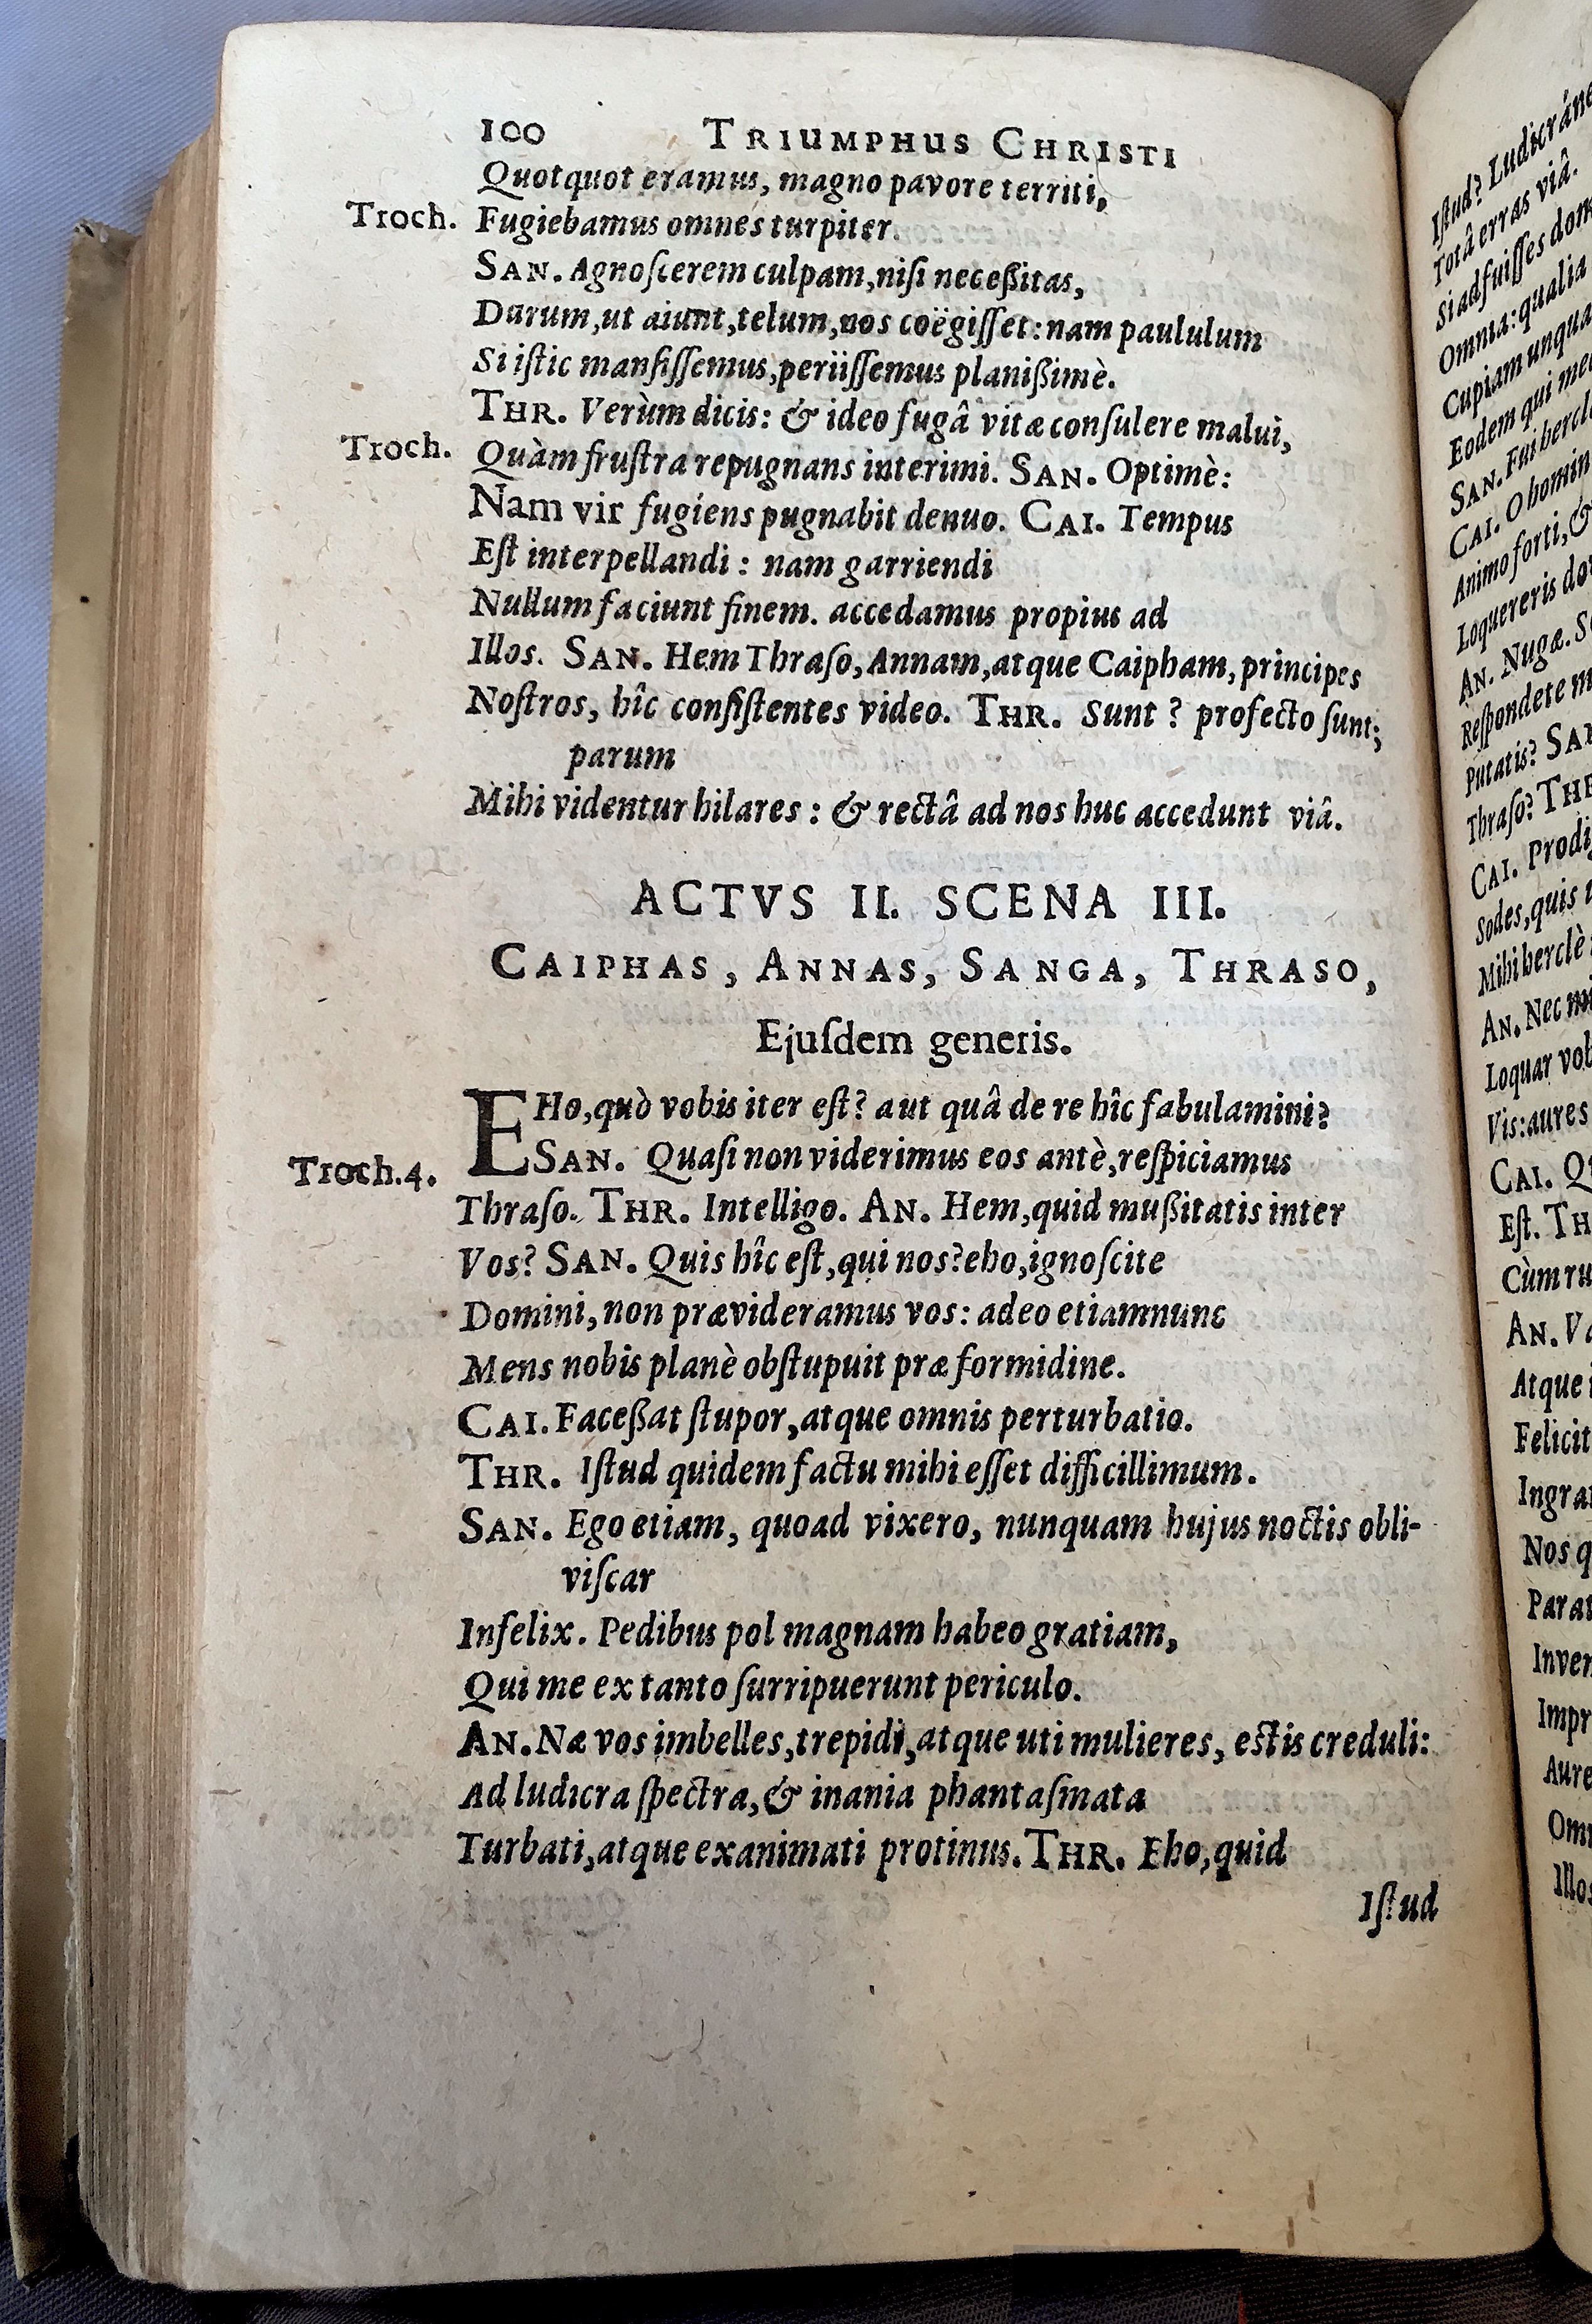 100 TRIUMPHUS CHRISTI
Quotquot eramus, magno pavore territi,
Troch. Fugiebamus omnes turpiter.
SAN. Agnoſcerem culpam, niſi neceßitas,
Durum, ut aiunt, telum, nos coëgiſſet: nam paululum
Si iſtic manſiſſemus, periiſſemus planißimè.
THR. Verùm dicis: & ideo fugâ vitæ conſulere malui,
Troch. Quàm fruſtra repugnans interimi. SAN. Optimè:
Nam vir fugiens pugnabit denuo. CAI. Tempus
Eſt interpellandi: nam garriendi
Nullum faciunt finem. accedamus propius ad
Illos. SAN. Hem Thraſo, Annam, atque Caipham, principes
Noſtros, hîc conſiſtentes video. THR. Sunt? profecto ſunt;
parum
Mihi videntur hilares: & rectâ ad nos huc accedunt viâ.
ACTVS II. SCENA III.
CAIPHAS, ANNAS, SANGA, THRASO,
Ejuſdem generis.
EHo, quò vobis iter eſt? aut quâ de re hîc fabulamini?
Troch.4. SAN. Quaſi non viderimus eos antè, reſpiciamus
Thraſo. THR. Intelligo. AN. Hem, quid mußitatis inter
Vos? SAN. Quis hîc eſt, qui nos? eho, ignoſcite
Domini, non prævideramus vos: adeo etiamnunc
Mens nobis planè obſtupuit præ formidine.
CAI. Faceßat ſtupor, atque omnis perturbatio.
THR. Iſtud quidem factu mihi eſſet difficillimum.
SAN. Ego etiam, quoad vixero, nunquam hujus noctis obli-
viſcar
Infelix. Pedibus pol magnam habeo gratiam,
Qui me ex tanto ſurripuerunt periculo.
AN. Næ vos imbelles, trepidi, atque uti mulieres, eſtis creduli:
Ad ludicra ſpectra, & inania phantaſmata
Turbati, atque exanimati protinus. THR. Eho, quid
Iſtud
Iſtud? Ludicráne
Totâ erras viâ.
Si adfuiſſes
Omnia: qualia
Cupiam
Eodem qui
SAN. Fui
CAI. O
Animo forti, &
Loquereris
AN. Nugæ.
Reſpondete
Putatis?
Thraſo?
CAI.
Sodes, quis
Mihi herclè
AN. Nec
Loquar
Vis: aures
CAI.
Eſt.
Cùm
AN.
Atque
Nos